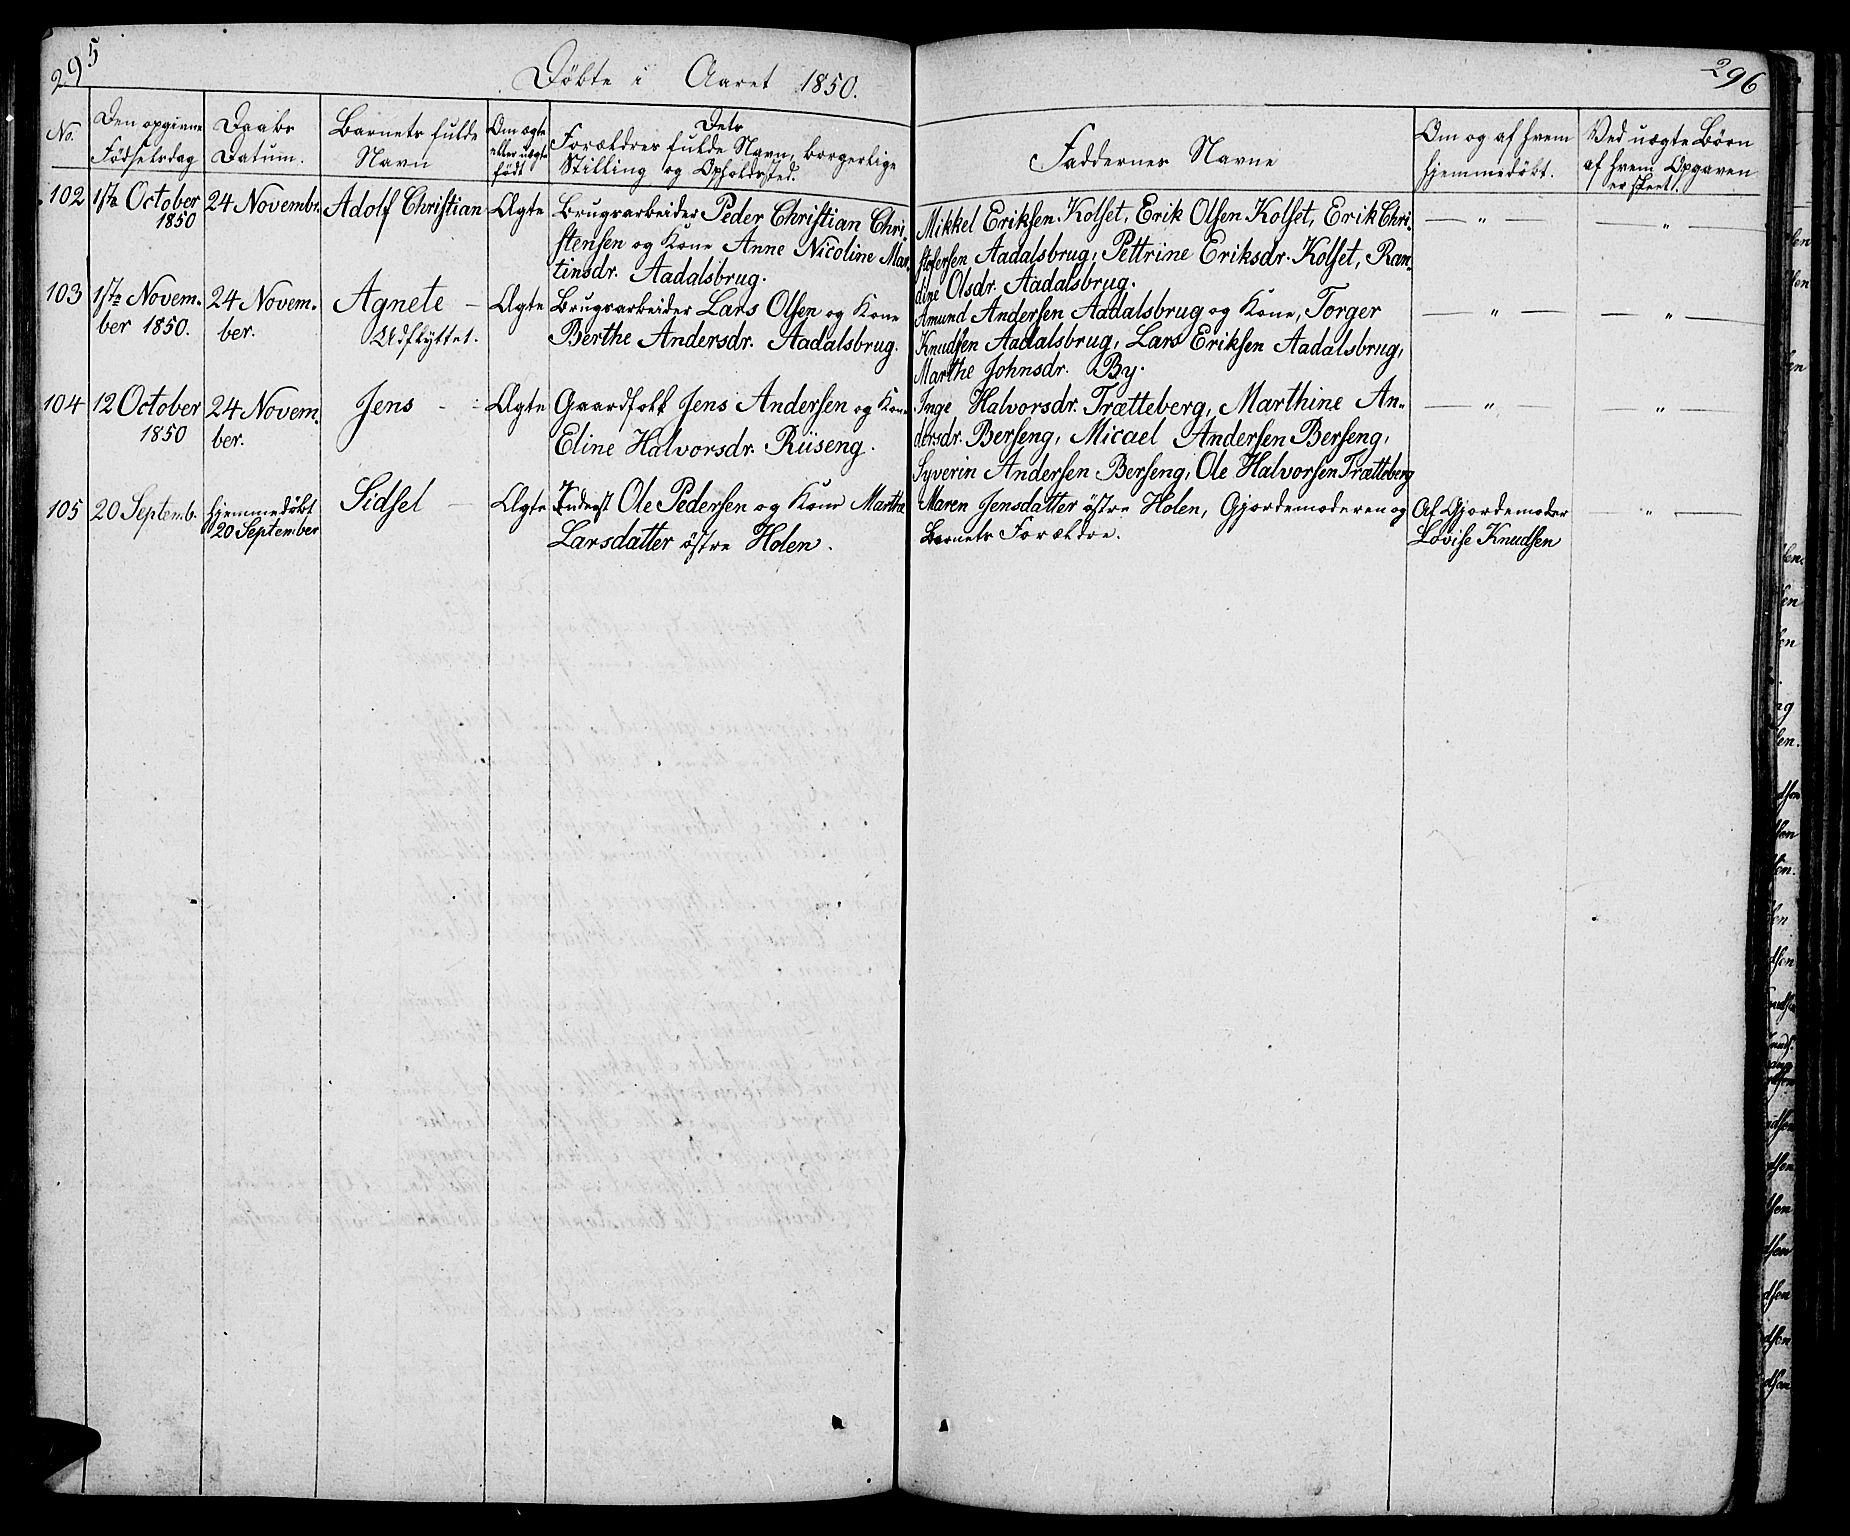 295
Döbte i Aaret 1850.
296
No.
Den opgivne Födselsdag
Daabs Datum.
Barnets fulde Navn
Om ægte eller uægte födt
Dets Forældres fulde Navn, borgerlige Stilling og Opholdssted.
Faddernes Navne
Om og af hvem hjemmedöbt.
Ved uægte Börn af hvem Opgaven er skeet.
102 1ste October 24 Novembr. Adolf Christian Ægte Brugsarbeider Peder Christian Chri-
1850 stensen og Kone Anne Nicoline Mar-
tinsdr. Aadalsbrug.
Mikkel Eriksen Kolset, Erik Olsen Kolset, Erik Chri-
stofersen Aadalsbrug, Pettrine Eriksdr. Kolset, Ran-
dine Olsdr. Aadalsbrug.
— " —
— " —
103 1ste Novem- 24 Novem- Agnete — Ægte Brugsarbeider Lars Olsen og Kone
ber 1850. ber. Udflyttet. Berthe Andersdr. Aadalsbrug.
Amund Andersen Aadalsbrug og Kone, Torger
Knudsen Aadalsbrug, Lars Eriksen Aadalsbrug,
Marthe Johnsdr. By.
— " —
— " —
104 12 October 24 Novem- Jens - - Ægte Gaardfolk Jens Andersen og Kone
1850 ber. Eline Halvorsdr. Riiseng.
Inge Halvorsdr. Trætteberg, Marthine An-
dersdr. Berseng, Micael Andersen Berseng,
Syverin Andersen Berseng, Ole Halvorsen Trætteberg
— " —
— " —
105 20 Septemb. hjemmedöbt Sidsel — Ægte Inderst Ole Pedersen og Kone Marthe
20 September Larsdatter östre Holen.
Maren Jensdatter östre Holen, Gjordemoderen og
Barnets Forældre.
Af Gjordemoder
Lovise Knudsen
— " —